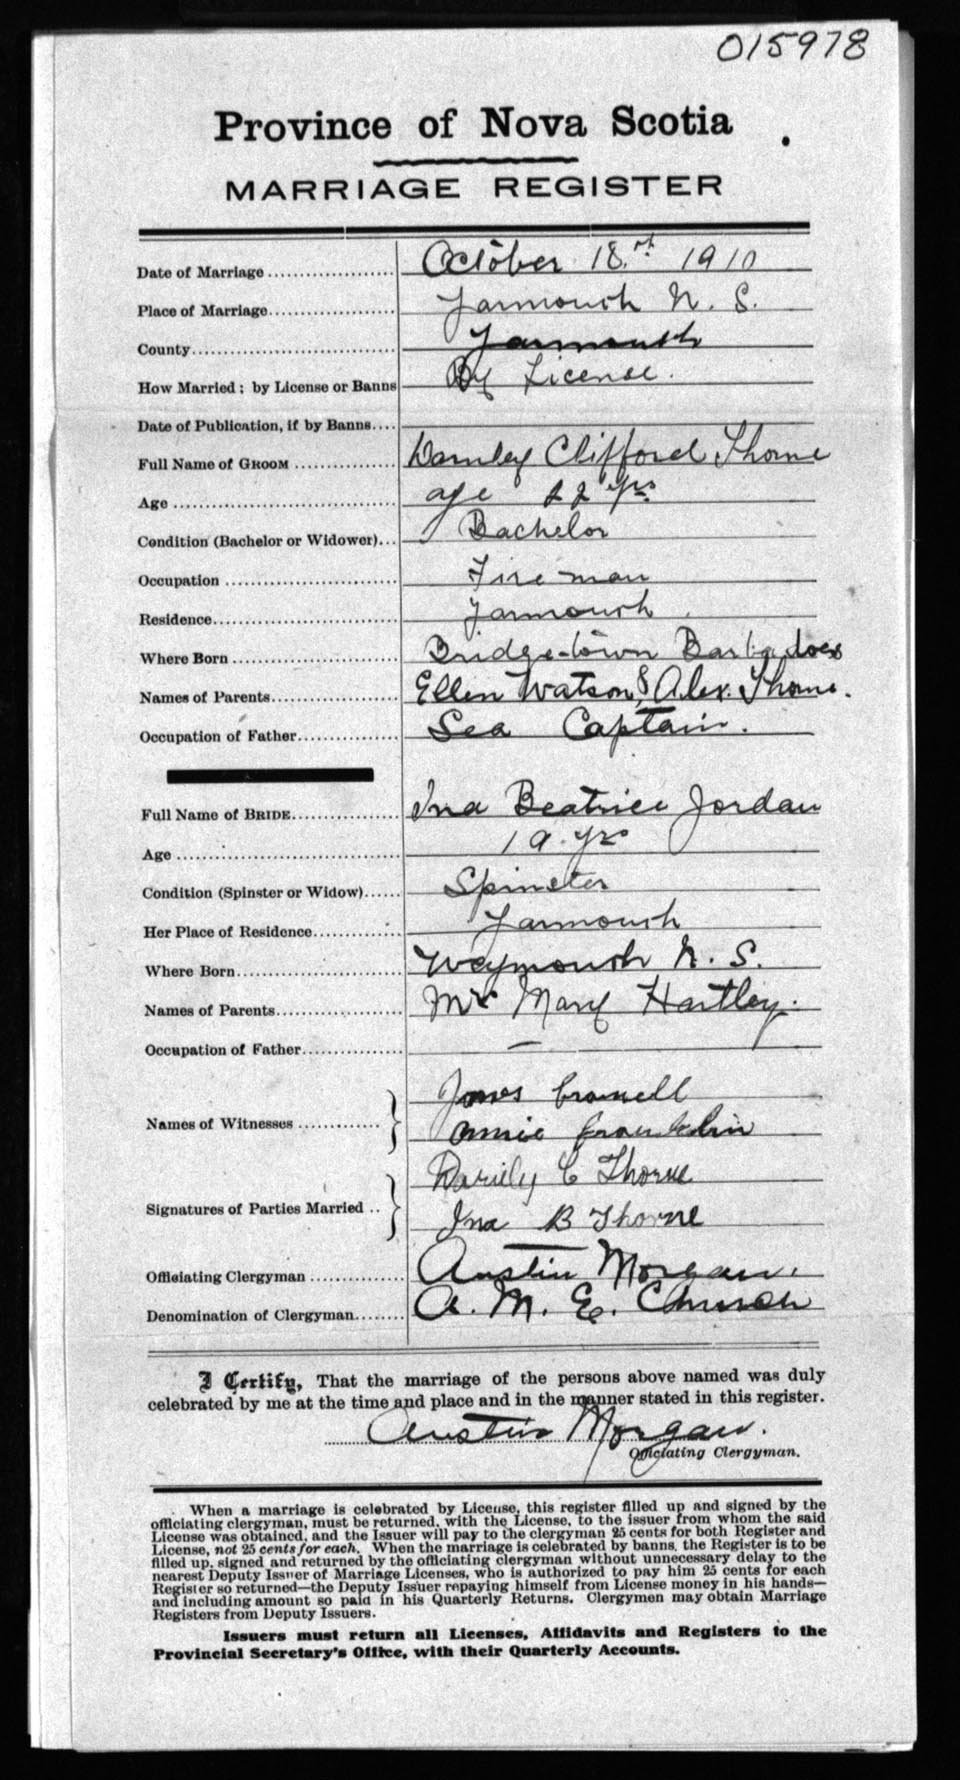 015978
Province of Nova Scotia
MARRIAGE REGISTER
Date of Marriage October 18.th 1910
Place of Marriage Yarmouth N. S.
County Yarmouth
How Married; by License or Banns By License.
Date of Publication, if by Banns
Full Name of GROOM Darnley Clifford Thorne
Age age 22 yrs
Condition (Bachelor or Widower) Bachelor
Occupation Fireman
Residence Yarmouth
Where Born Bridgetown Barbadoes
Names of Parents Ellen Watson & Alex. Thorne.
Occupation of Father Sea Captain.
Full Name of BRIDE Ina Beatrice Jordan
Age 19. yrs
Condition (Spinster or Widow) Spinster
Her Place of Residence Yarmouth
Where Born Weymouth N. S.
Names of Parents Mary Hartley.
Occupation of Father —
Names of Witnesses
James Cromwell
Annie Franklin
Signatures of Parties Married
C Thorne
Ina B Thorne
Officiating Clergyman Austin Morgan.
Denomination of Clergyman A. M. E. Church
I Certify, That the marriage of the persons above named was duly
celebrated by me at the time and place and in the manner stated in this register.
Austin Morgan.
Officiating Clergyman.
When a marriage is celebrated by License, this register filled up and signed by the
officiating clergyman, must be returned, with the License, to the issuer from whom the said
License was obtained, and the Issuer will pay to the clergyman 25 cents for both Register and
License, not 25 cents for each. When the marriage is celebrated by banns, the Register is to be
filled up, signed and returned by the officiating clergyman without unnecessary delay to the
nearest Deputy Issuer of Marriage Licenses, who is authorized to pay him 25 cents for each
Register so returned—the Deputy Issuer repaying himself from License money in his hands—
and including amount so paid in his Quarterly Returns. Clergymen may obtain Marriage
Registers from Deputy Issuers.
Issuers must return all Licenses, Affidavits and Registers to the
Provincial Secretary's Office, with their Quarterly Accounts.